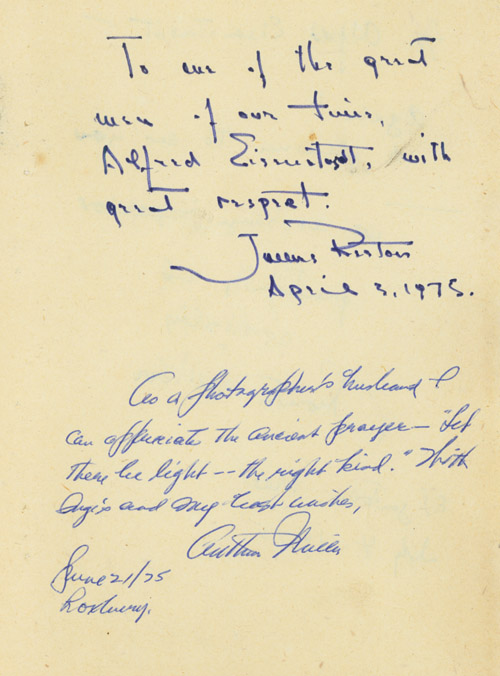 To one of the great
men of our times,
Alfred Eisenstaedt, with
great respect.
James Reston
April 3, 1975.
As a photographer's husband I
can appreciate the ancient prayer— "Let
there be light -- the right kind." With
Inge's and my best wishes,
Arthur Miller
June 21/75
Roxbury.